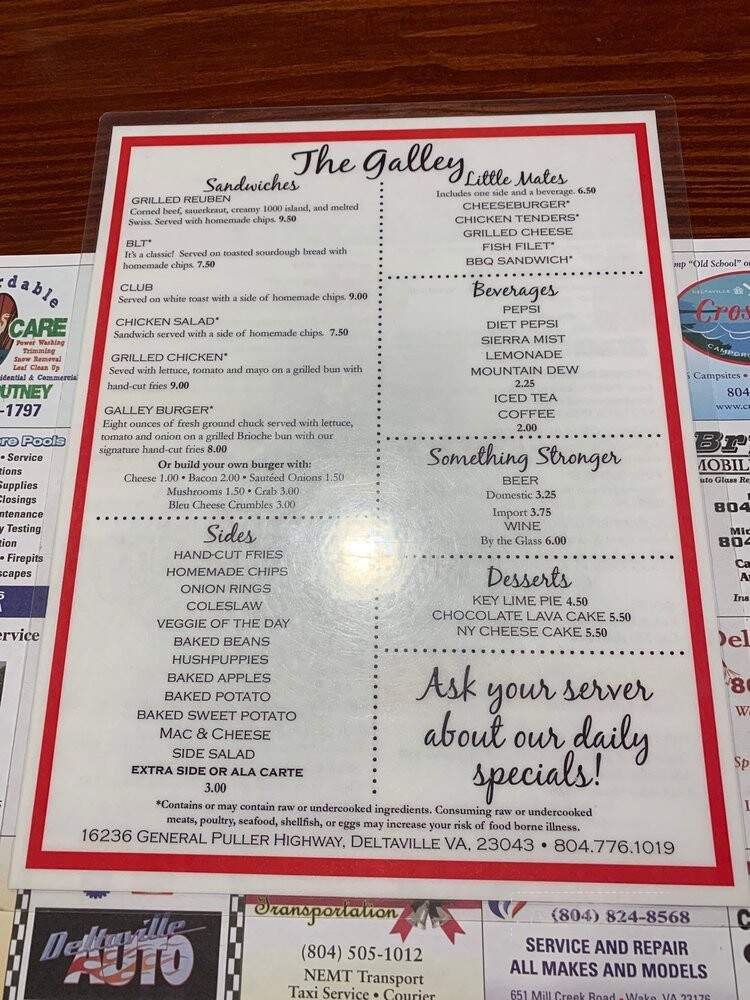 The Galley
Sandwiches
GRILLED REUBEN
Corned beef, sauerkraut, creamy 1000 island, and melted
Swiss. Served with homemade chips. 9.50
BLT*
It's a classic! Served on toasted sourdough bread with
homemade chips. 7.50
CLUB
Served on white toast with a side of homemade chips. 9.00
CHICKEN SALAD*
Sandwich served with a side of homemade chips. 7.50
GRILLED CHICKEN*
Seved with lettuce, tomato and mayo on a grilled bun with
hand-cut fries 9.00
GALLEY BURGER*
Eight ounces of fresh ground chuck served with lettuce,
tomato and onion on a grilled Brioche bun with our
signature hand-cut fries 8.00
Or build your own burger with:
Cheese 1.00 • Bacon 2.00 • Sautéed Onions 1.50
Mushrooms 1.50 • Crab 3.00
Bleu Cheese Crumbles 3.00
Sides
HAND-CUT FRIES
HOMEMADE CHIPS
ONION RINGS
COLESLAW
VEGGIE OF THE DAY
BAKED BEANS
HUSHPUPPIES
BAKED APPLES
BAKED POTATO
BAKED SWEET POTATO
MAC & CHEESE
SIDE SALAD
EXTRA SIDE OR ALA CARTE
3.00
Little Mates
Includes one side and a beverage. 6.50
CHEESEBURGER*
CHICKEN TENDERS*
GRILLED CHEESE
FISH FILET*
BBQ SANDWICH*
Beverages
PEPSI
DIET PEPSI
SIERRA MIST
LEMONADE
MOUNTAIN DEW
2.25
ICED TEA
COFFEE
2.00
Something Stronger
BEER
Domestic 3.25
Import 3.75
WINE
By the Glass 6.00
Desserts
KEY LIME PIE 4.50
CHOCOLATE LAVA CAKE 5.50
NY CHEESE CAKE 5.50
Ask your server
about our daily
specials!
*Contains or may contain raw or undercooked ingredients. Consuming raw or undercooked
meats, poultry, seafood, shellfish, or eggs may increase your risk of food borne illness.
16236 GENERAL PULLER HIGHWAY, DELTAVILLE VA, 23043 • 804.776.1019
CARE
Power Washing
Trimming
Snow Removal
Leaf Clean Up
-1797
Pools
• Service
Supplies
Testing
• Firepits
"Old School"
DELTAVILLE
Campsites •
804
Auto Glass
804
Deltaville
AUTO
Transportation
(804) 505-1012
NEMT Transport
Taxi Service • Courier
(804) 824-8568
SERVICE AND REPAIR
ALL MAKES AND MODELS
651 Mill Creek Road • Wake, VA 23176